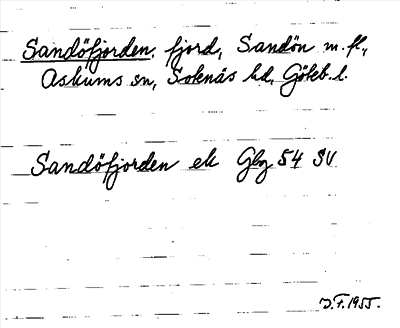 Sandöfjorden, fjord, Sandön m.fl.,
Askums sn, Sotenäs hd, Göteb. l.
Sandöfjorden ek Gbg 54 SV
J.F. 1955.